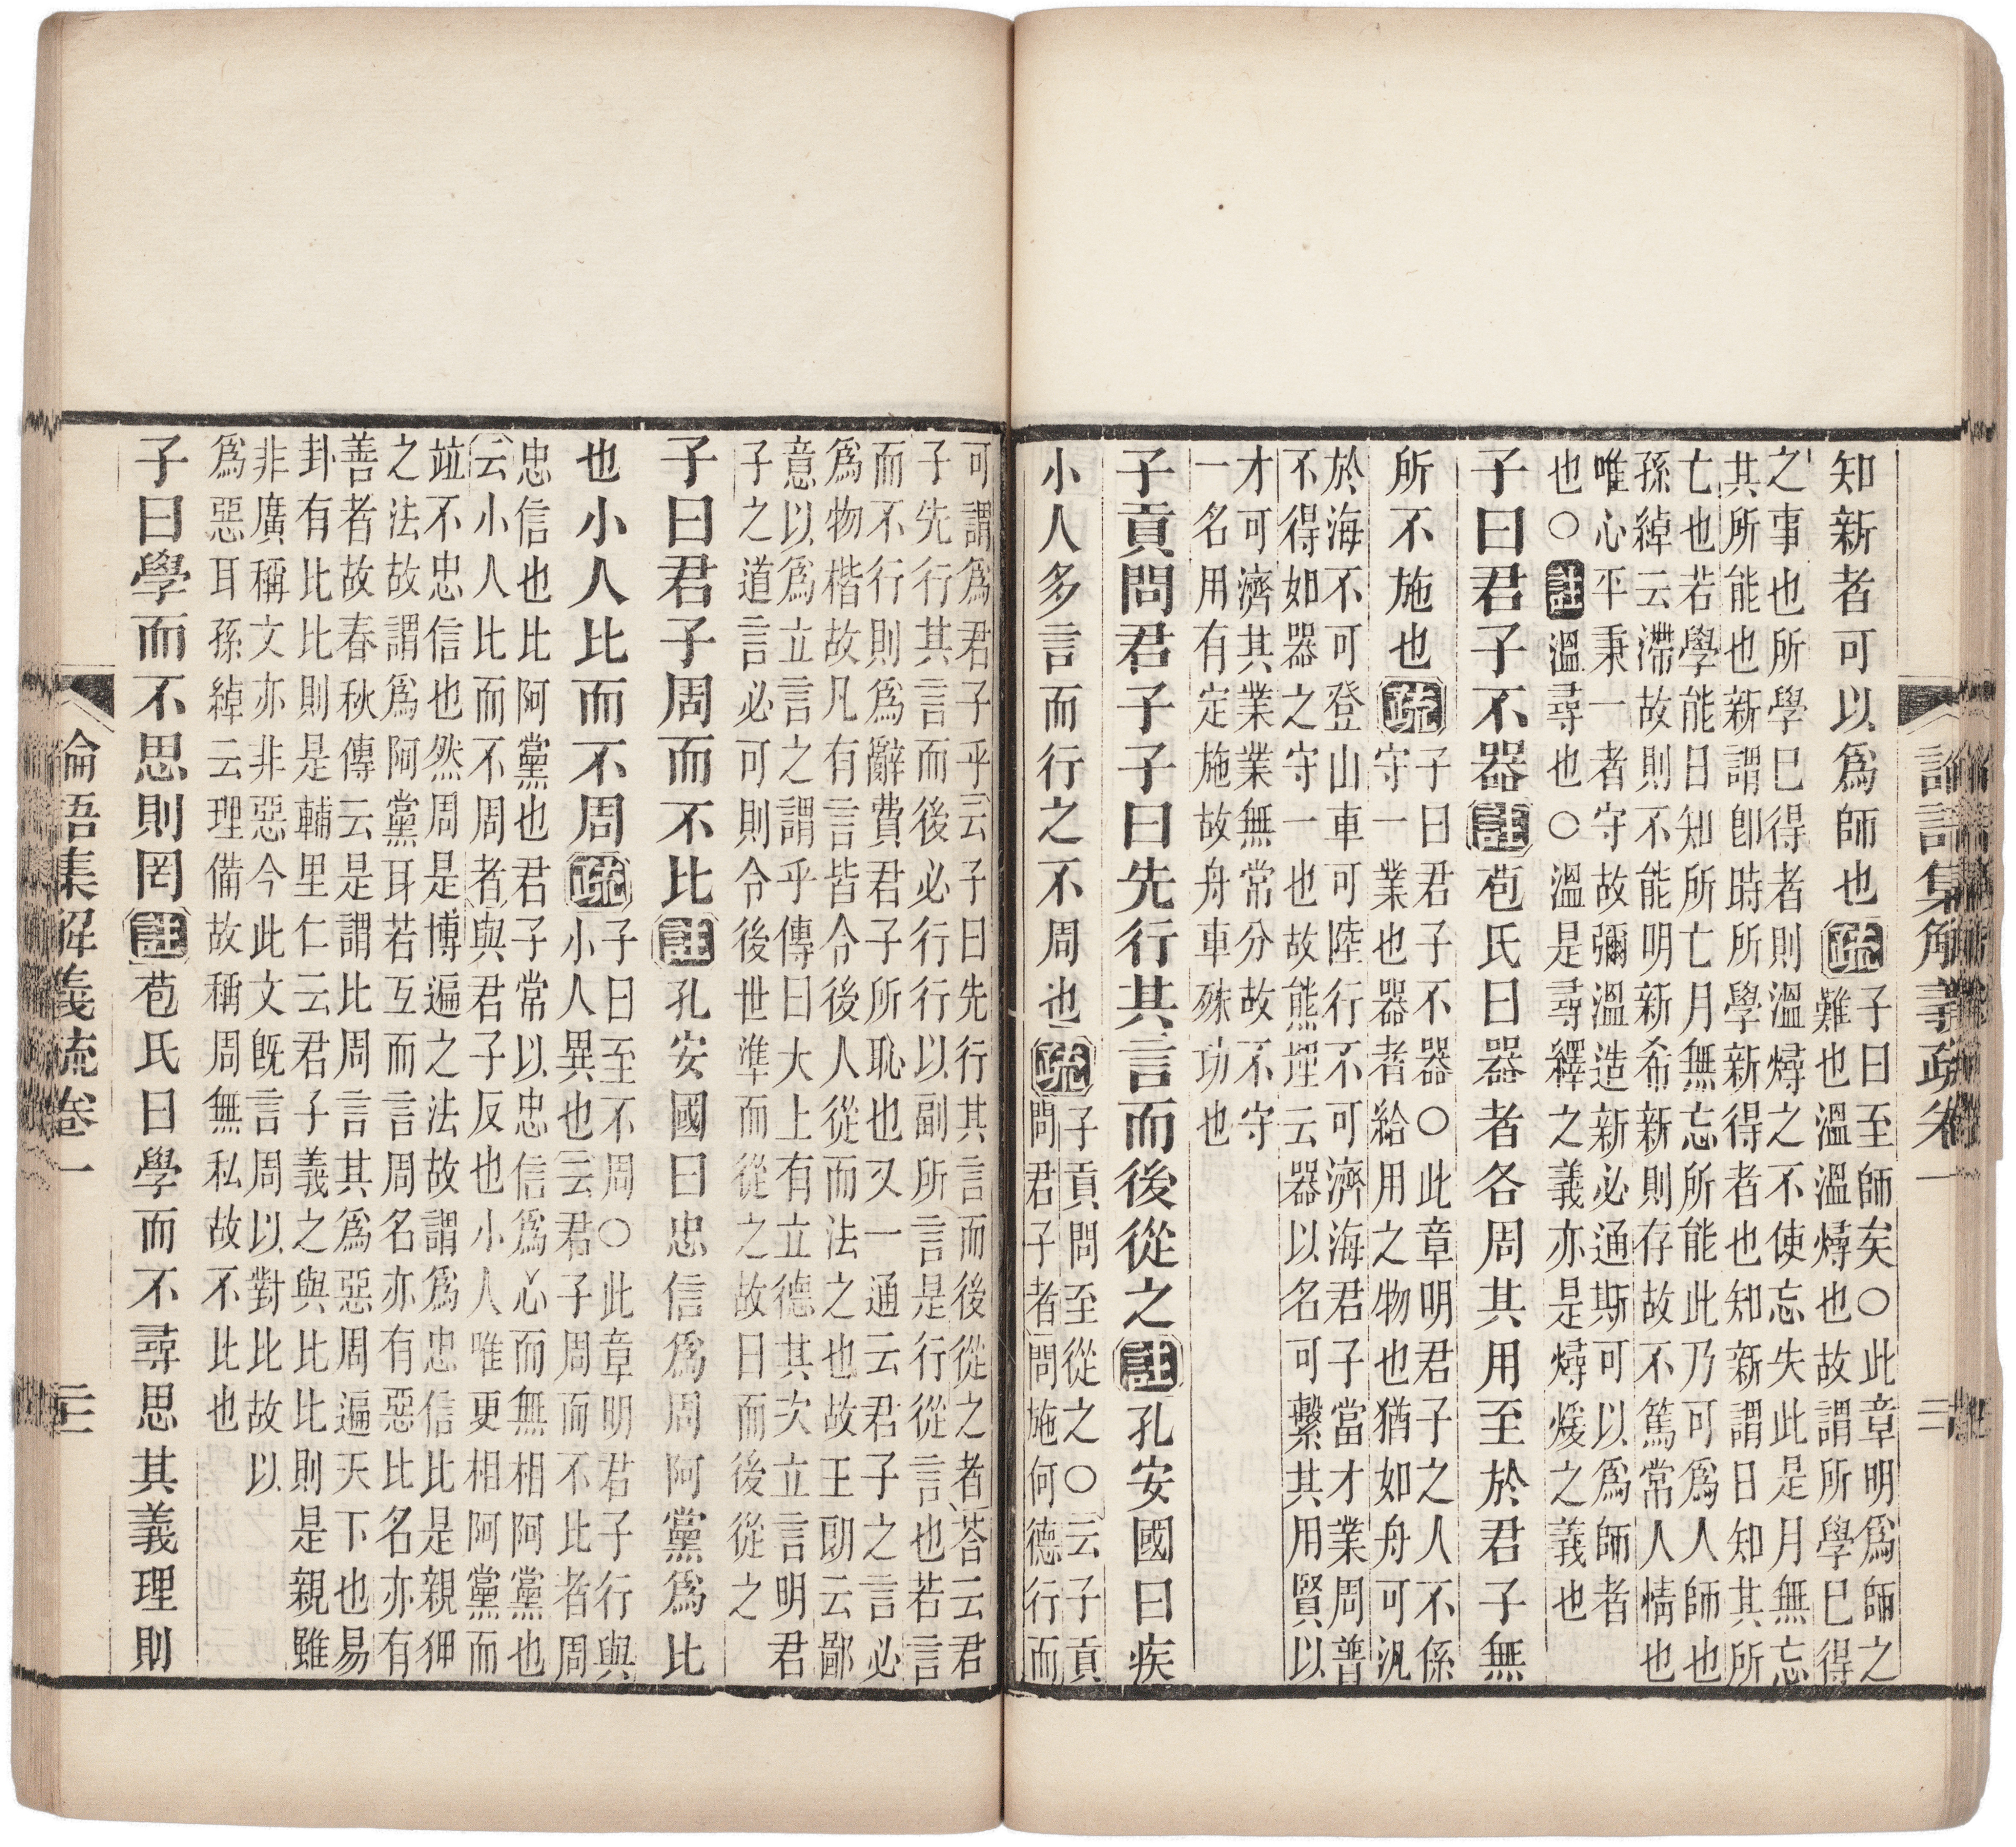 論語集解義疏卷一 二
知新者可以爲師也疏子曰至師矣○此章明爲師之
難也溫溫燖也故謂所學已得
之事也所學已得者則溫燖之不使忘失此是月無忘
其所能也新謂卽時所學新得者也知新謂日知其所
亡也若學能日知所亡月無忘所能此乃可爲人師也
孫綽云滯故則不能明新希新則存故不篤常人情也
唯心平秉一者守故彌溫造新必通斯可以爲師者
也○註溫尋也○溫是尋繹之義亦是燖煖之義也
子曰君子不器註苞氏曰器者各周其用至於君子無
所不施也疏子曰君子不器○此章明君子之人不係
守一業也器者給用之物也猶如舟可汎
於海不可登山車可陸行不可濟海君子當才業周普
不得如器之守一也故熊埋云器以名可繫其用賢以
才可濟其業業無常分故不守
一名用有定施故舟車殊功也
子貢問君子子曰先行其言而後從之註孔安國曰疾
小人多言而行之不周也疏子貢問至從之○云子貢
問君子者問施何德行而
可謂爲君子乎云子曰先行其言而後從之者荅云君
子先行其言而後必行行以副所言是行從言也若言
而不行則爲辭費君子所恥也又一通云君子之言必
爲物楷故凡有言皆令後人從而法之也故王朗云鄙
意以爲立言之謂乎傳曰大上有立德其次立言明君
子之道言必可則令後世準而從之故曰而後從之
子曰君子周而不比註孔安國曰忠信爲周阿黨爲比
也小人比而不周疏子曰至不周○此章明君子行與
小人異也云君子周而不比者周
忠信也比阿黨也君子常以忠信爲心而無相阿黨也
云小人比而不周者與君子反也小人唯更相阿黨而
竝不忠信也然周是博遍之法故謂爲忠信比是親狎
之法故謂爲阿黨耳若互而言周名亦有惡比名亦有
善者故春秋傳云是謂比周言其爲惡周遍天下也易
卦有比比則是輔里仁云君子義之與比比則是親雖
非廣稱文亦非惡今此文旣言周以對比故以
爲惡耳孫綽云理備故稱周無私故不比也
子曰學而不思則罔註苞氏曰學而不尋思其義理則
論語集解義疏卷一 二十二